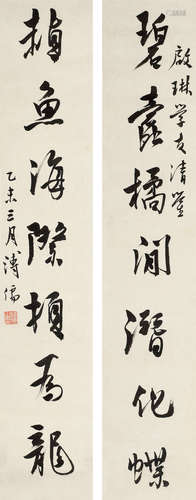 啟琳学友清鑒
碧蠹橘間潛化蝶
赬魚海際頓為龍
乙未三月溥儒